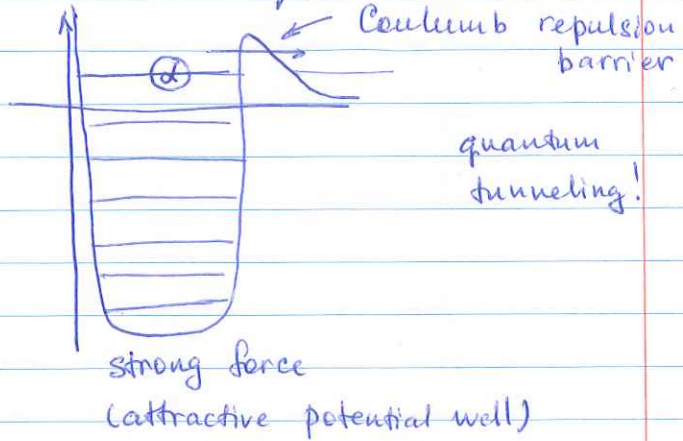 Coulumb repulsion
barrier
α
quantum
tunneling!
strong force
(attractive potential well)